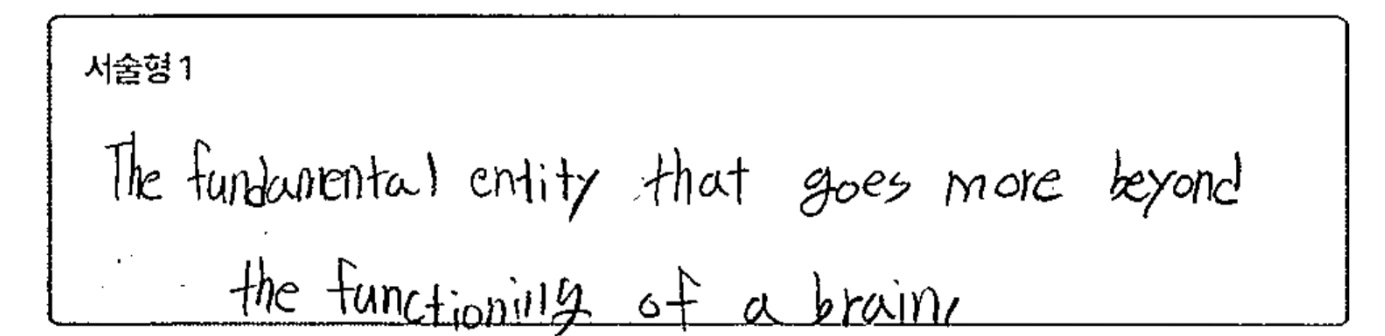 서술형 1
The fundamental entity that goes more beyond
the functioning of a brain,